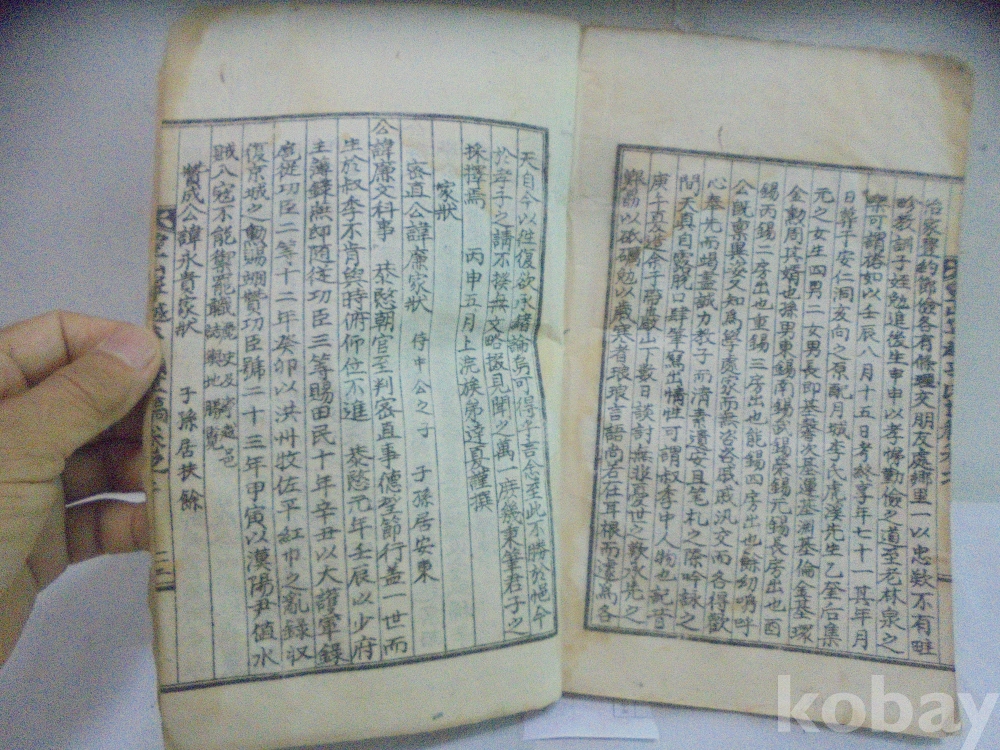 治家豊約節儉各有條理交朋友處鄉里一以忠欵不有畦
畛教訓子姪勉進後生申申以孝悌勤儉之道至老林泉之
可謂裕如以壬辰八月十五日考終享年七十一其年月
日葬于安仁洞亥向之原配月城李氏虎漢先生乙奎后集
元之女生四男二女男長即基馨次基運基淵基倫金基環
金勲周其婿也孫男東錫南錫武錫榮錫元錫長房出也酉
錫丙錫二房出也重錫三房出也能錫四房出也餘幼嗚呼
公旣賣異姿又知為學處家而無咨嗟戚戚汎交而各得歡
心奉先而竭盡誠力教子而清素遺安且筆札之際吟詠之
間天真自露脫口肆筆寫出情性可謂叔季中人物也記昔
庚子夏造余于帶巖山下數日談討無非憂世之歎求先之
艱易以砥礪勉以歲寒者琅琅言語尚若在耳根而遽為各
天自今以往復欲承緖論焉可得乎言念至此不勝於悒今
於孝子之請不揆無文略掇見聞之萬一庶幾秉筆君子之
採擇焉 丙申五月上浣族弟達夏謹撰
家狀
密直公諱廉家狀 侍中公之子 子孫居安東
公諱廉文科事 恭愍朝官至判密直事德望節行蓋一世而
生於叔季不肯與時俯仰位不進 恭愍元年壬辰以少府
主薄錄燕邸隨從功臣三等賜田民十年辛丑以大護軍錄
扈從功臣二等十二年癸卯以洪州牧佐平紅巾之亂錄収
復京城之勳賜翊贊功臣號二十三年甲寅以漢陽尹值水
賊入寇不能禦罷職
贊成公諱永貴家狀 子孫居扶餘